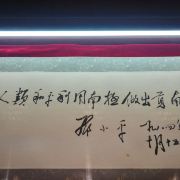 人類和平利用南極做出貢
邓小平 一九八四
十月十五